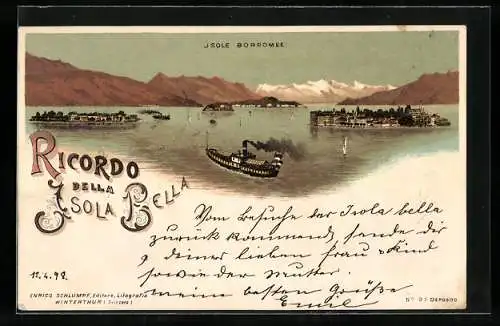 JSOLE BORROMEE
RICORDO
DELLA
ISOLA BELLA
Vom Besuche der Isola bella
zurück kommend, sende dir
& deiner lieben Frau & Kind
sowie der Mutter
meine besten Grüße
Emil
12.4.98
ENRICO SCHLUMPF, Editore, Litografia
WINTERTHUR (Svizzera)
DEPOSDO